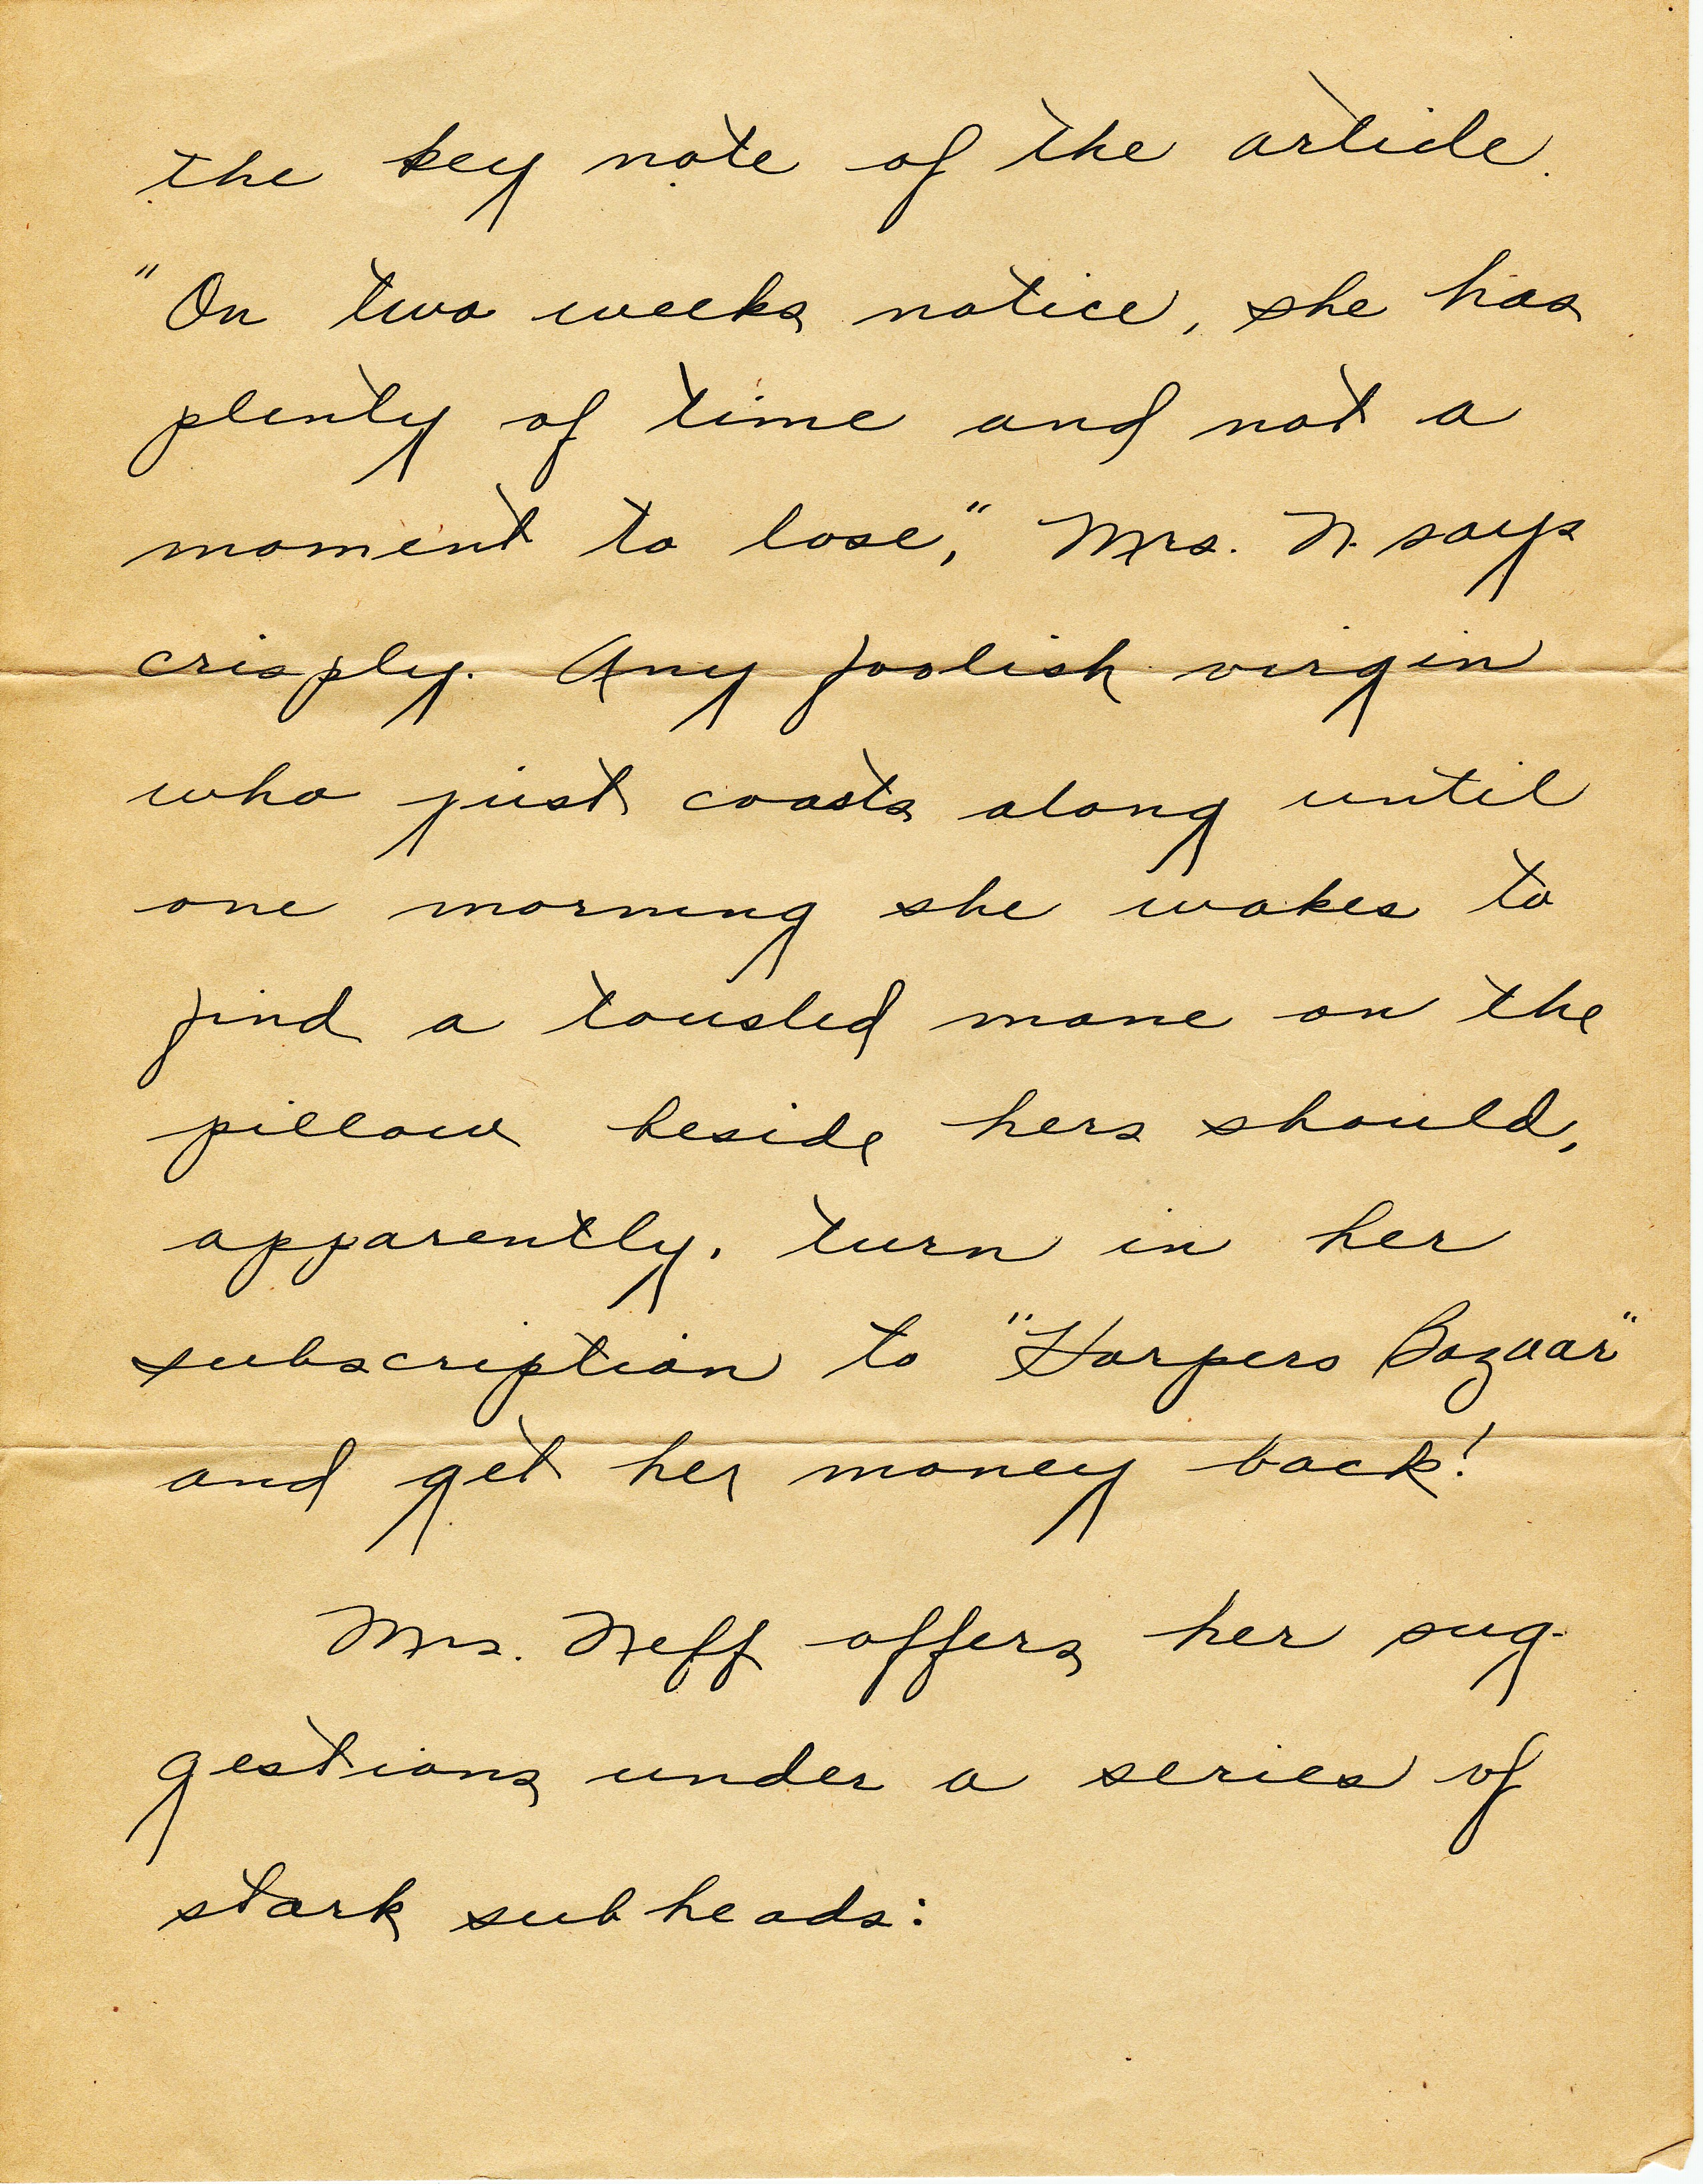 the key note of the article.
"On two weeks notice, she has
plenty of time and not a
moment to lose," Mrs. N. says
crisply. Any foolish virgin
who just coasts along until
one morning she wakes to
find a tousled mane on the
pillow beside hers should,
apparently, turn in her
subscription to "Harpers Bazaar"
and get her money back!
Mrs. Neff offers her sug-
gestions under a series of
stark subheads: